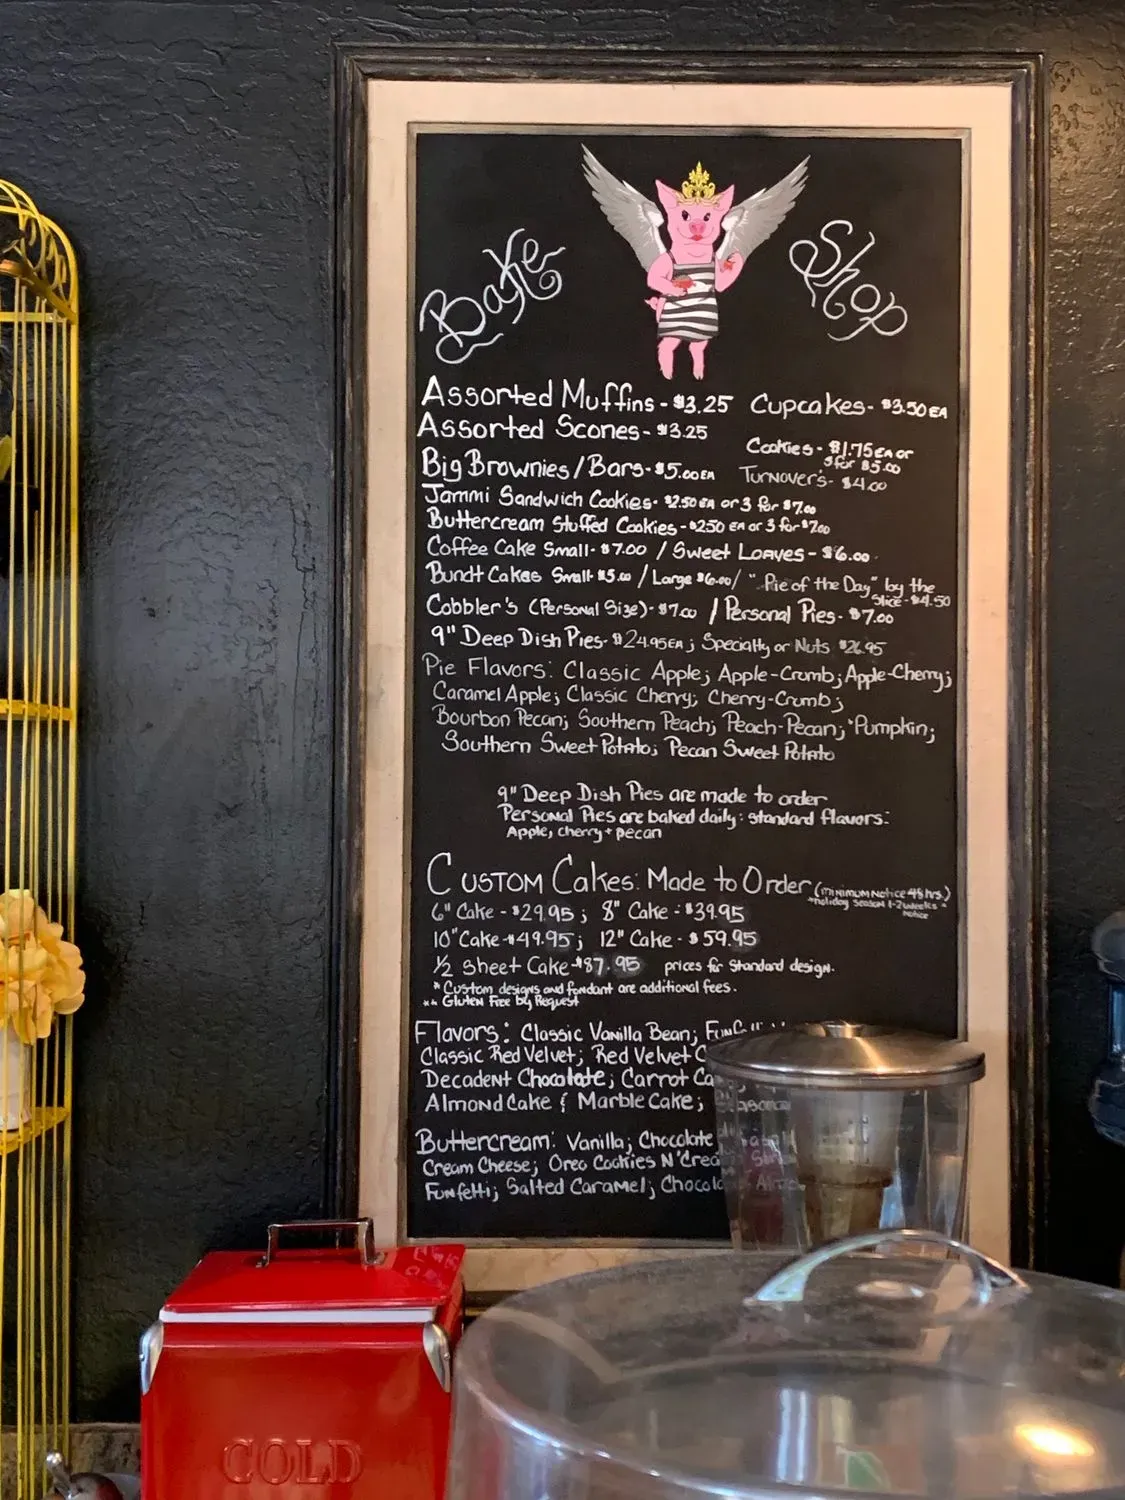 Bake Shop
Assorted Muffins - $3.25 Cupcakes - $3.50 EA
Assorted Scones - $3.25
Cookies - $1.75 EA or
3 for $5.00
Big Brownies / Bars - $5.00 EA Turnover's - $4.00
Jammi Sandwich Cookies - $2.50 EA or 3 for $7.00
Buttercream Stuffed Cookies - $2.50 EA or 3 for $7.00
Coffee Cake Small - $7.00 / Sweet Loaves - $6.00
Bundt Cakes Small - $5.00 / Large $6.00 / "Pie of the Day" by the
Slice - $4.50
Cobbler's (Personal Size) - $7.00 / Personal Pies - $7.00
9" Deep Dish Pies - $24.95 EA ; Specialty or Nuts $26.95
Pie Flavors: Classic Apple; Apple-Crumb; Apple-Cherry;
Caramel Apple; Classic Cherry; Cherry-Crumb;
Bourbon Pecan; Southern Peach; Peach-Pecan; *Pumpkin;
Southern Sweet Potato; Pecan Sweet Potato
9" Deep Dish Pies are made to order
Personal Pies are baked daily: standard flavors:
Apple, cherry + pecan
Custom Cakes: Made to Order (minimum notice 48 hrs.)
*holiday season 1-2 weeks *
notice
6" Cake - $29.95 ; 8" Cake - $39.95
10" Cake - $49.95 ; 12" Cake - $59.95
1/2 Sheet Cake - $87.95 prices for standard design.
* Custom designs and fondant are additional fees.
** Gluten Free by Request
Flavors: Classic Vanilla Bean;
Classic Red Velvet; Red Velvet
Decadent Chocolate; Carrot
Almond Cake & Marble Cake;
Buttercream: Vanilla; Chocolate
Cream Cheese; Oreo Cookies N'
Funfetti; Salted Caramel;
COLD